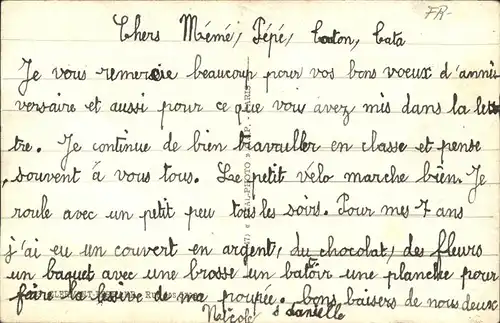 FR-
Chers Mémé, Pépé, Tonton, Tata
Je vous remercie beaucoup pour vos bons voeux d'anni
versaire et aussi pour ce que vous avez mis dans la let
tre. Je continue de bien travailler en classe et pense
souvent à vous tous. Le petit vélo marche bien. Je
roule avec un petit peu tous les soirs. Pour mes 7 ans
j'ai eu un couvert en argent, du chocolat, des fleurs
un baquet avec une brosse un batoir une planche pour
faire la lessive de ma poupée. bons baisers de nous deux
Nicole & danielle